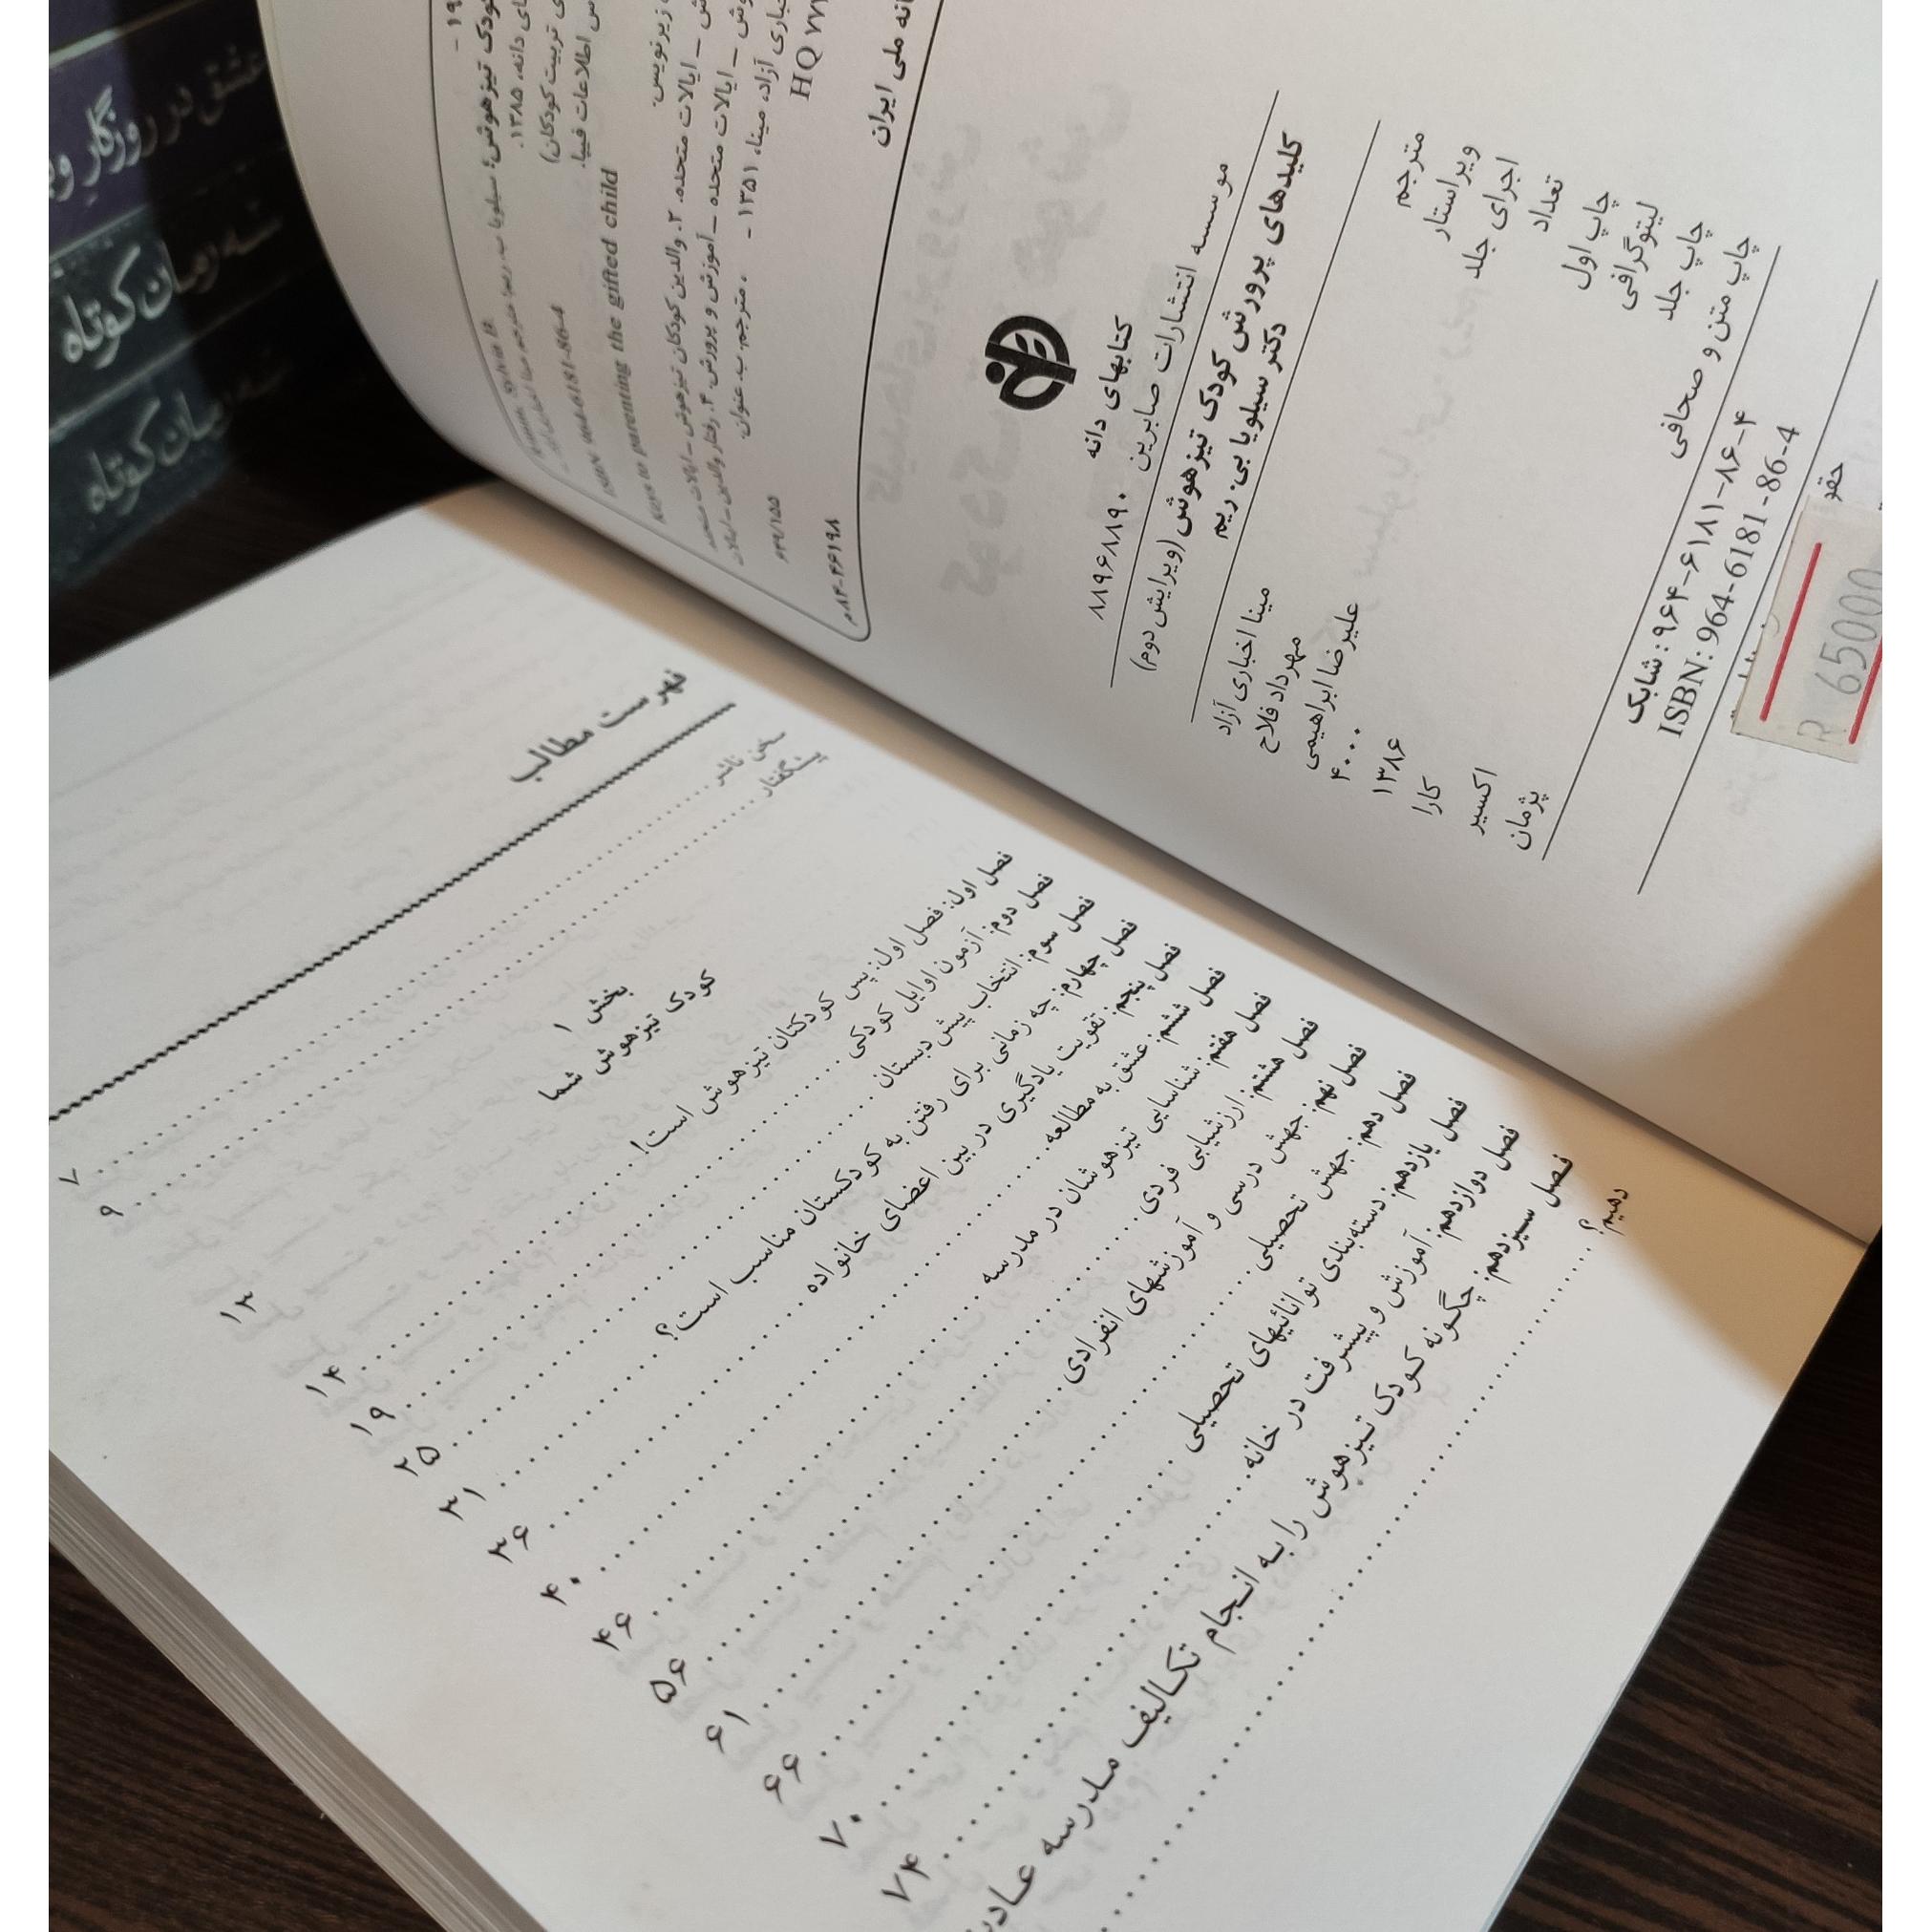 عشق در روزگار
سه رمان کوتاه
سه رمان کوتاه
Sylvia B.
کودک تیزهوش؛ سیلویا ب. ریم؛ مترجم مینا اخباری آزاد
دانه، ۱۳۸۵.
تربیت کودکان)
اطلاعات فیپا.
ISBN 964-6181-86-4
Keys to parenting the gifted child
زیرنویس.
ایالات متحده. ۲. والدین کودکان تیزهوش – ایالات متحده
ایالات متحده – آموزش و پرورش. ۴. رفتار والدین – ایالات
آزاد، مینا، ۱۳۵۱ - ، مترجم. ب. عنوان.
HQ ۷۷۳
۶۴۹/۱۵۵
ملی ایران
م۸۴-۴۶۱۹۸
کتابهای دانه
موسسه انتشارات صابرین ۸۸۹۶۸۸۹۰
کلیدهای پرورش کودک تیزهوش (ویرایش دوم)
دکتر سیلویا بی. ریم
مترجم مینا اخباری آزاد
ویراستار مهرداد فلاح
اجرای جلد علیرضا ابراهیمی
تعداد ۴۰۰۰
چاپ اول ۱۳۸۶
لیتوگرافی کارا
چاپ جلد اکسیر
چاپ متن و صحافی پژمان
شابک: ۹۶۴-۶۱۸۱-۸۶-۴
ISBN: 964-6181-86-4
R 65000
فهرست مطالب
سخن ناشر ۷
پیشگفتار ۹
بخش ۱
کودک تیزهوش شما ۱۳
فصل اول: فصل اول: پس کودکتان تیزهوش است! ۱۴
فصل دوم: آزمون اوایل کودکی ۱۹
فصل سوم: انتخاب پیش‌دبستان ۲۵
فصل چهارم: چه زمانی برای رفتن به کودکستان مناسب است؟ ۳۱
فصل پنجم: تقویت یادگیری در بین اعضای خانواده ۳۶
فصل ششم: عشق به مطالعه ۴۰
فصل هفتم: شناسایی تیزهوشان در مدرسه ۴۶
فصل هشتم: ارزشیابی فردی ۵۶
فصل نهم: جهش درسی و آموزشهای انفرادی ۶۱
فصل دهم: جهش تحصیلی ۶۶
فصل یازدهم: دسته‌بندی توانائیهای تحصیلی ۷۰
فصل دوازدهم: آموزش و پیشرفت در خانه ۷۴
فصل سیزدهم: چگونه کودک تیزهوش را به انجام تکالیف مدرسه
دهیم؟